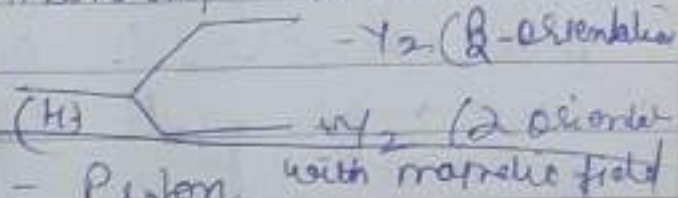 -Y2 (β-orientation
(H) +Y2 (α orient
- Proton with magnetic field